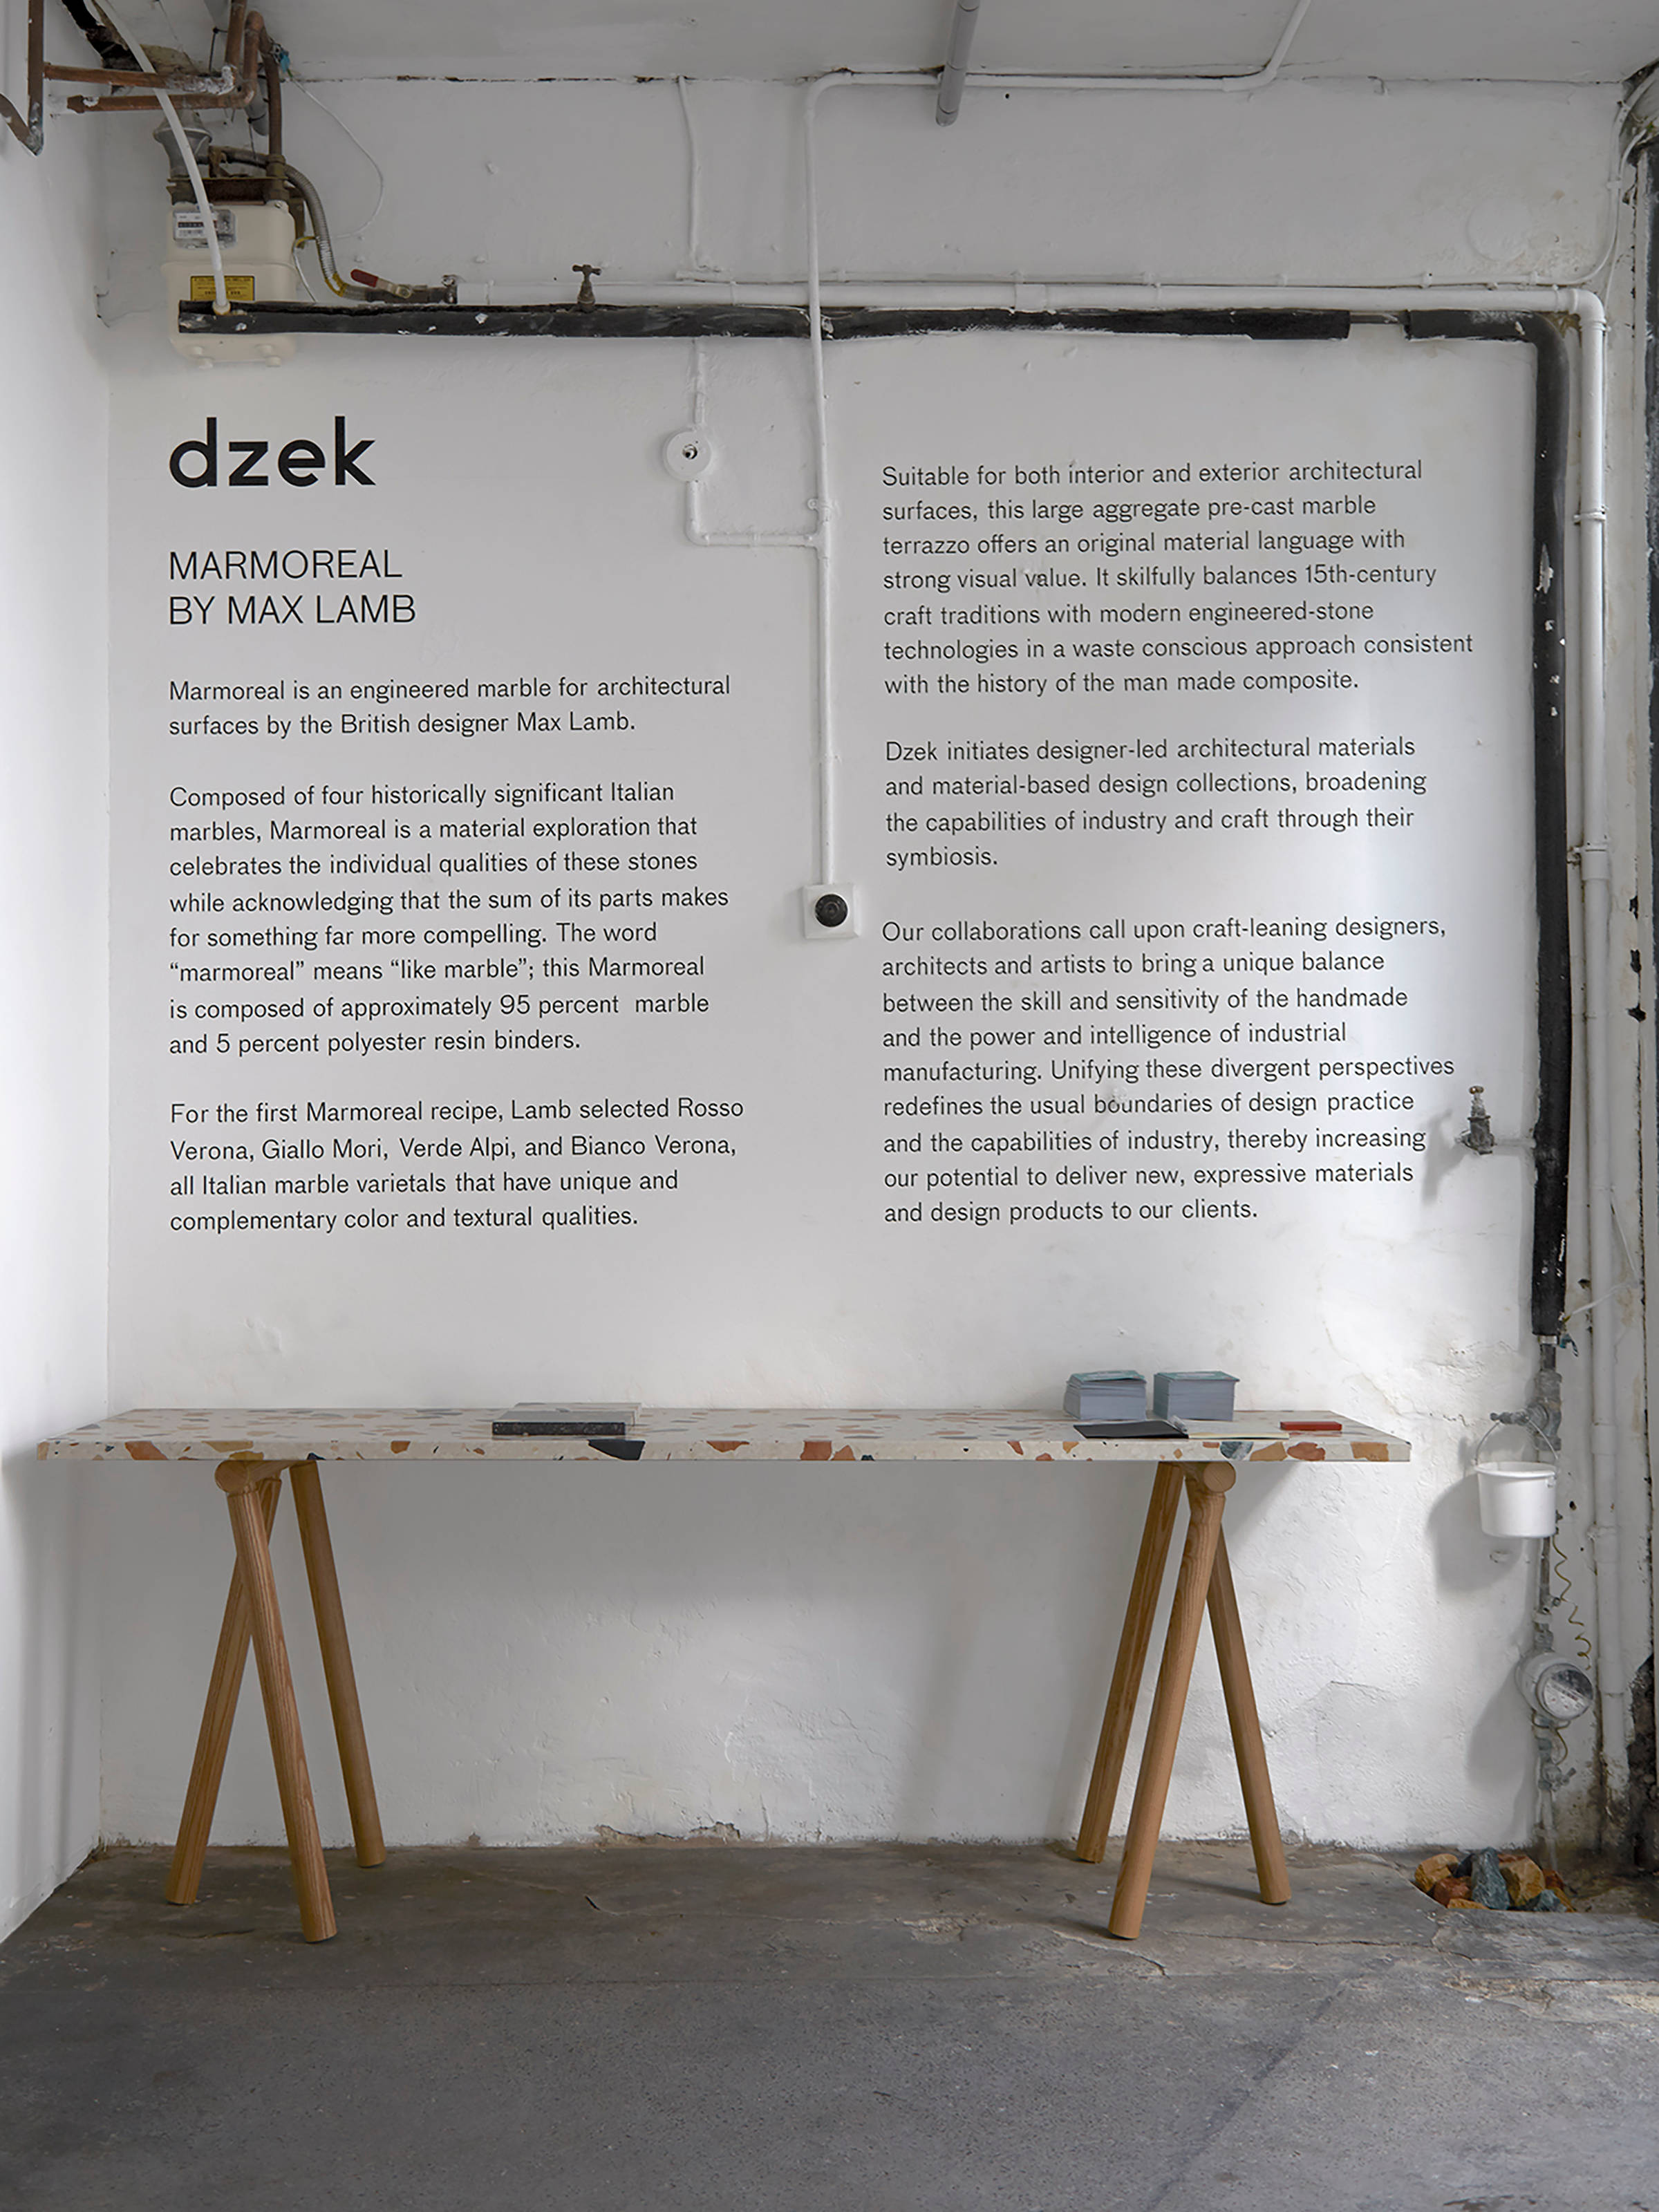 dzek
MARMOREAL
BY MAX LAMB
Marmoreal is an engineered marble for architectural
surfaces by the British designer Max Lamb.
Composed of four historically significant Italian
marbles, Marmoreal is a material exploration that
celebrates the individual qualities of these stones
while acknowledging that the sum of its parts makes
for something far more compelling. The word
“marmoreal” means “like marble”; this Marmoreal
is composed of approximately 95 percent  marble
and 5 percent polyester resin binders.
For the first Marmoreal recipe, Lamb selected Rosso
Verona, Giallo Mori, Verde Alpi, and Bianco Verona,
all Italian marble varietals that have unique and
complementary color and textural qualities.
Suitable for both interior and exterior architectural
surfaces, this large aggregate pre-cast marble
terrazzo offers an original material language with
strong visual value. It skilfully balances 15th-century
craft traditions with modern engineered-stone
technologies in a waste conscious approach consistent
with the history of the man made composite.
Dzek initiates designer-led architectural materials
and material-based design collections, broadening
the capabilities of industry and craft through their
symbiosis.
Our collaborations call upon craft-leaning designers,
architects and artists to bring a unique balance
between the skill and sensitivity of the handmade
and the power and intelligence of industrial
manufacturing. Unifying these divergent perspectives
redefines the usual boundaries of design practice
and the capabilities of industry, thereby increasing
our potential to deliver new, expressive materials
and design products to our clients.